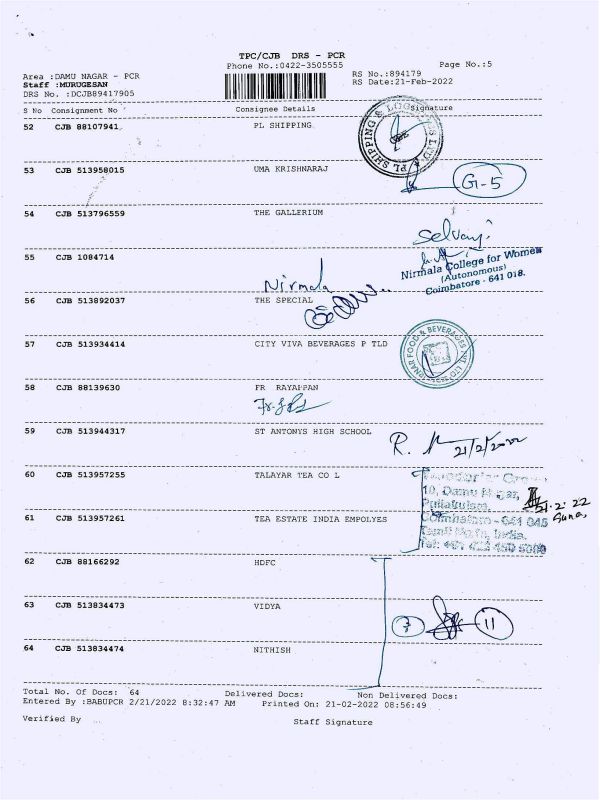 TPC/CJB DRS - PCR
Phone No.:0422-3505555
Page No.:5
Area :DAMU NAGAR - PCR
RS No.:894179
Staff :MURUGESAN
RS Date:21-Feb-2022
DRS No. :DCJB89417905
S No Consignment No Consignee Details Signature
52 CJB 88107941 PL SHIPPING
PL SHIPPING &
53 CJB 513958015 UMA KRISHNARAJ
G-5
54 CJB 513796559 THE GALLERIUM
Selvaraj
55 CJB 1084714
Nirmala College for Women
(Autonomous)
Coimbatore - 641 018.
Nirmala
56 CJB 513892037 THE SPECIAL
57 CJB 513934414 CITY VIVA BEVERAGES P TLD
FOOD & BEVERAGES
58 CJB 88139630 FR RAYAPPAN
59 CJB 513944317 ST ANTONYS HIGH SCHOOL
R. 21/2/2022
60 CJB 513957255 TALAYAR TEA CO L
10, Damu Nagar,
Puliakulam,
21.2.22
61 CJB 513957261 TEA ESTATE INDIA EMPOLYES
Coimbatore - 641 045
Tamil Nadu, India.
62 CJB 88166292 HDFC
63 CJB 513834473 VIDYA
7 11
64 CJB 513834474 NITHISH
Total No. Of Docs: 64 Delivered Docs: Non Delivered Docs:
Entered By :BABUPCR 2/21/2022 8:32:47 AM Printed On: 21-02-2022 08:56:49
Verified By Staff Signature